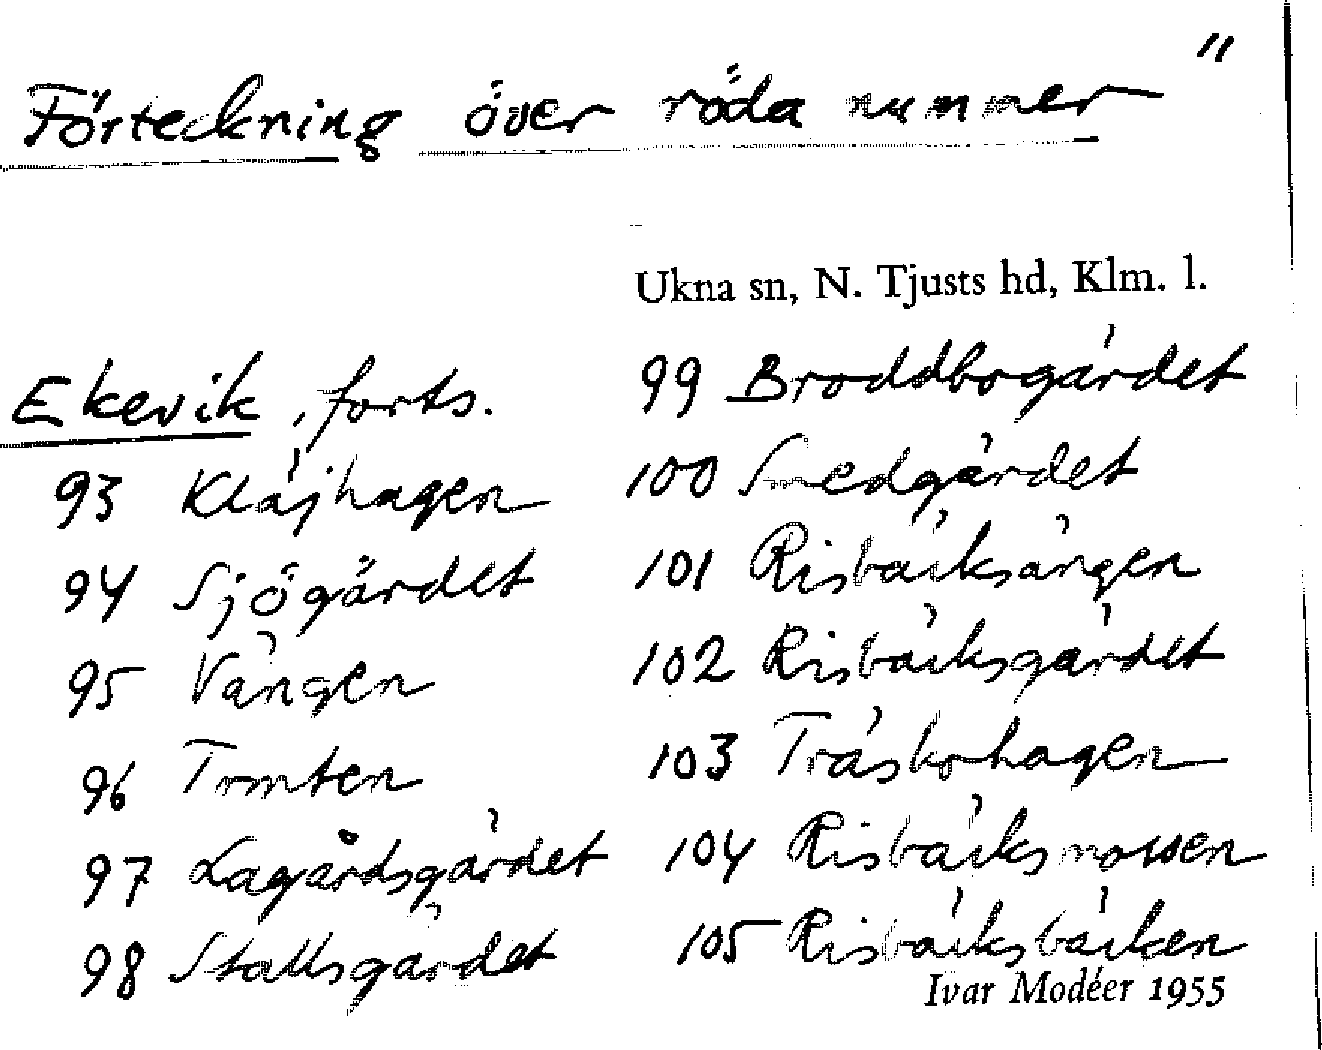 11
Förteckning över röda nummer
Ukna sn, N. Tjusts hd, Klm. l.
Ekevik, forts.
93 Kläjhagen
94 Sjögärdet
95 Vängen
96 Tomten
97 Lagårdsgärdet
98 Stallsgärdet
99 Broddbogärdet
100 Smedgärdet
101 Risbäcksängen
102 Risbäcksgärdet
103 Träskohagen
104 Risbäcksmossen
105 Risbäcksbäcken
Ivar Modéer 1955